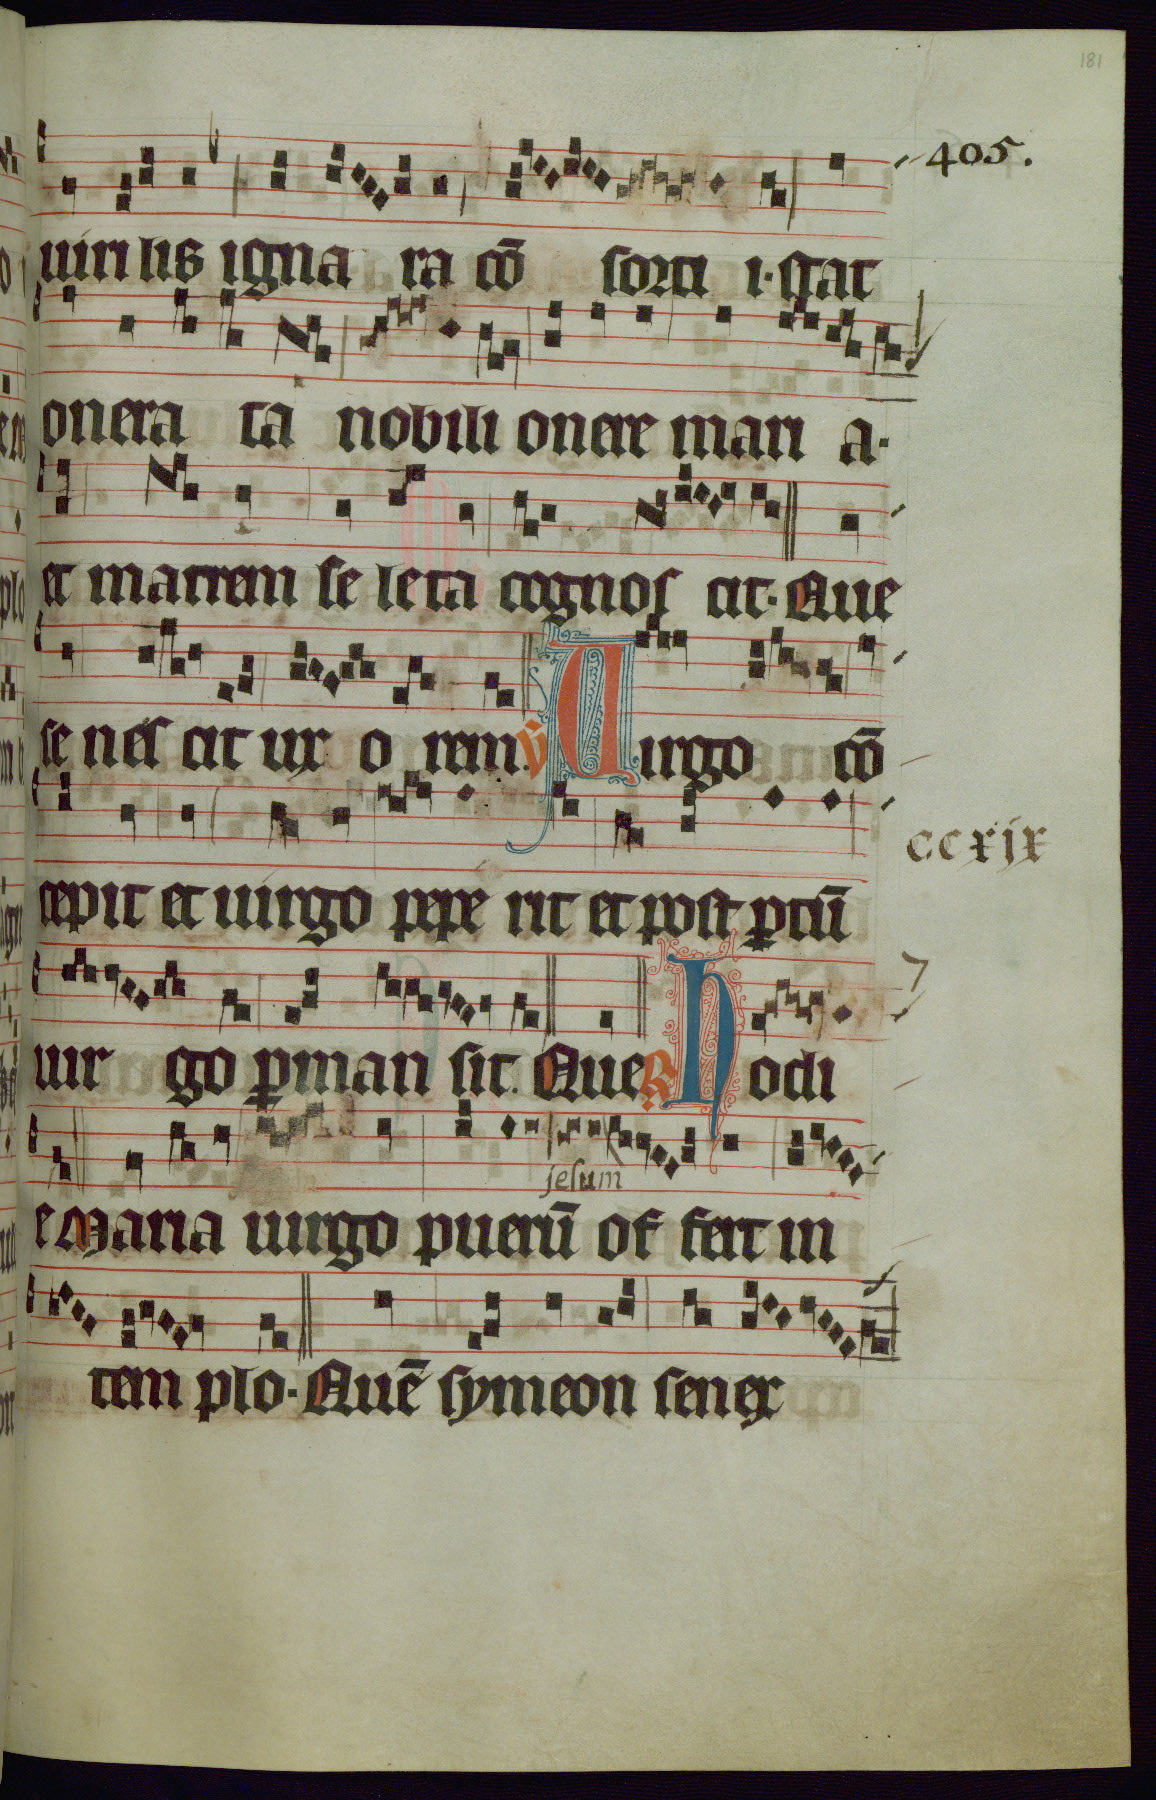 181
405.
uiri lis igna ra cō sorti i· stat
onera ta nobili onere mari a·
et matrem se leta cognos cit· Que
se nes cit ux o rem. V Uirgo cō
cepit et uirgo pepe rit et post ꝑtū
ccxix
uir go ꝑman sit. Que R Hodi
jesum
e Maria uirgo puerū of fert in
tem plo· Quē symeon senex